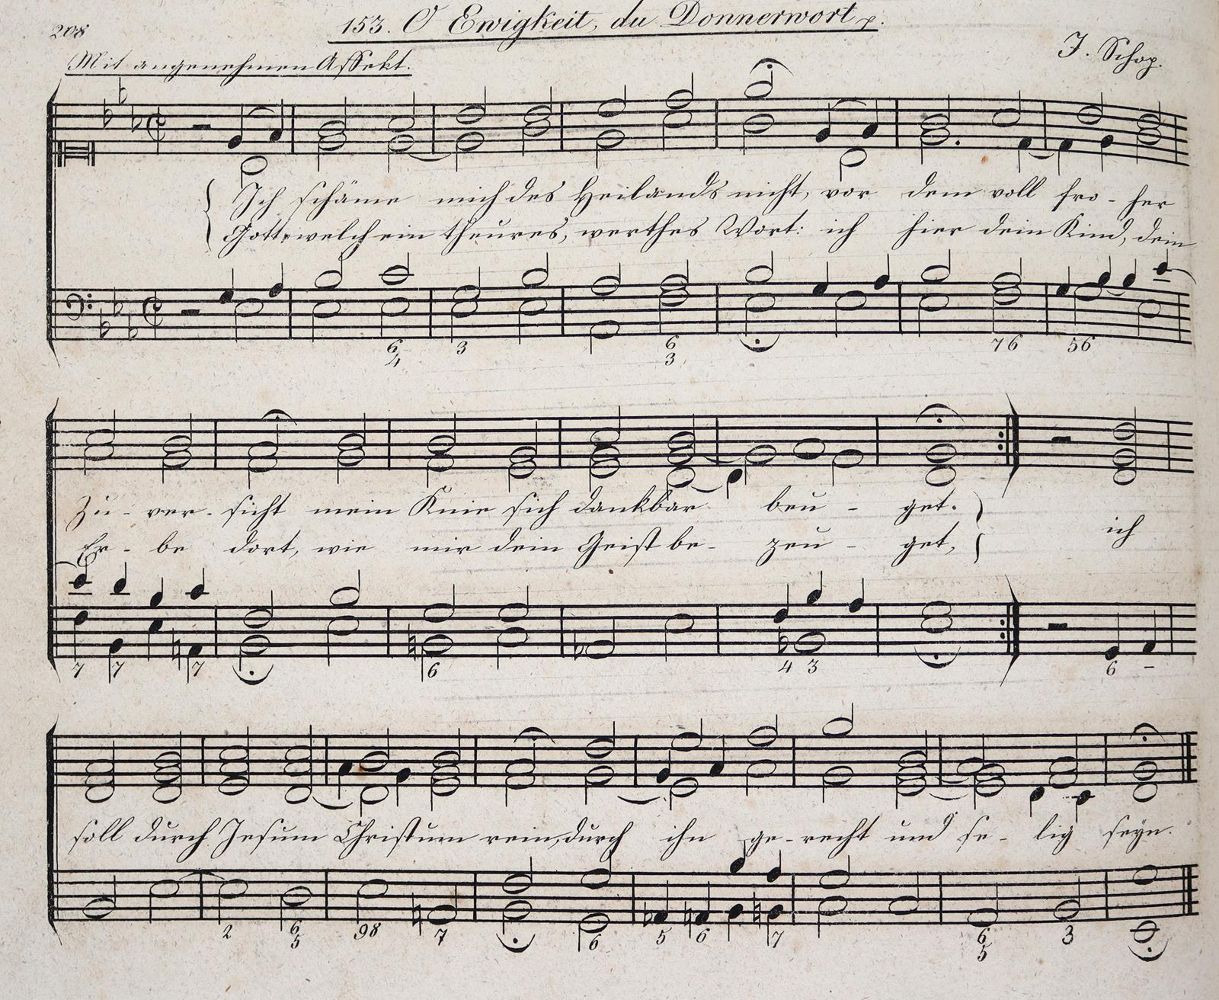 208
153. O Ewigkeit, du Donnerwort p.
Mit angenehmen Affekt.
J. Schop.
Ich schäme mich des Heilands nicht, vor dem voll fro-her
Gott, welch ein theures, werthes Wort: ich hier dein Kind, dein
6 3 6 7 6 5 6
4 3
Zu-ver-sicht mein Knie sich dankbar beu-get.
Er-be dort, wie mir dein Geist be-zeu-get,
ich
7 7 7 6 4 3 6 –
soll durch Jesum Christum rein, durch ihn ge-recht und se-lig seyn.
2 6 9 8 7 6 5 6 7 6 3
5 5